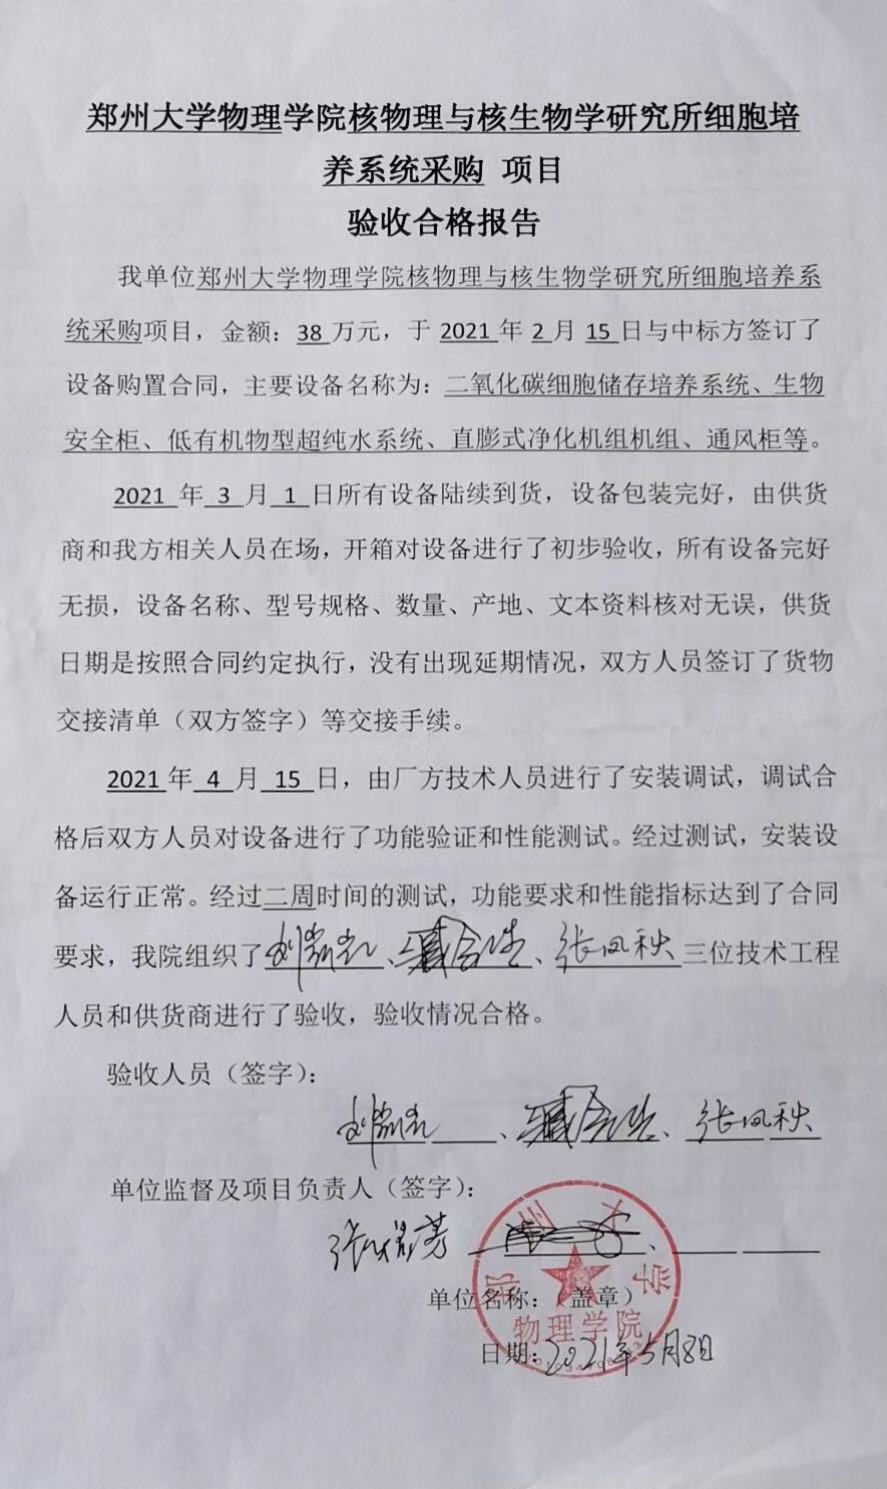 郑州大学物理学院核物理与核生物学研究所细胞培
养系统采购 项目
验收合格报告
我单位郑州大学物理学院核物理与核生物学研究所细胞培养系
统采购项目，金额：38 万元，于 2021 年 2 月 15 日与中标方签订了
设备购置合同，主要设备名称为：二氧化碳细胞储存培养系统、生物
安全柜、低有机物型超纯水系统、直膨式净化机组机组、通风柜等。
2021 年 3 月 1 日所有设备陆续到货，设备包装完好，由供货
商和我方相关人员在场，开箱对设备进行了初步验收，所有设备完好
无损，设备名称、型号规格、数量、产地、文本资料核对无误，供货
日期是按照合同约定执行，没有出现延期情况，双方人员签订了货物
交接清单（双方签字）等交接手续。
2021 年 4 月 15 日，由厂方技术人员进行了安装调试，调试合
格后双方人员对设备进行了功能验证和性能测试。经过测试，安装设
备运行正常。经过二周时间的测试，功能要求和性能指标达到了合同
要求，我院组织了、、张凤秋三位技术工程
人员和供货商进行了验收，验收情况合格。
验收人员（签字）：
、、张凤秋
单位监督及项目负责人（签字）：
、
单位名称：（盖章）
郑州大学
物理学院
日期：2021年5月8日